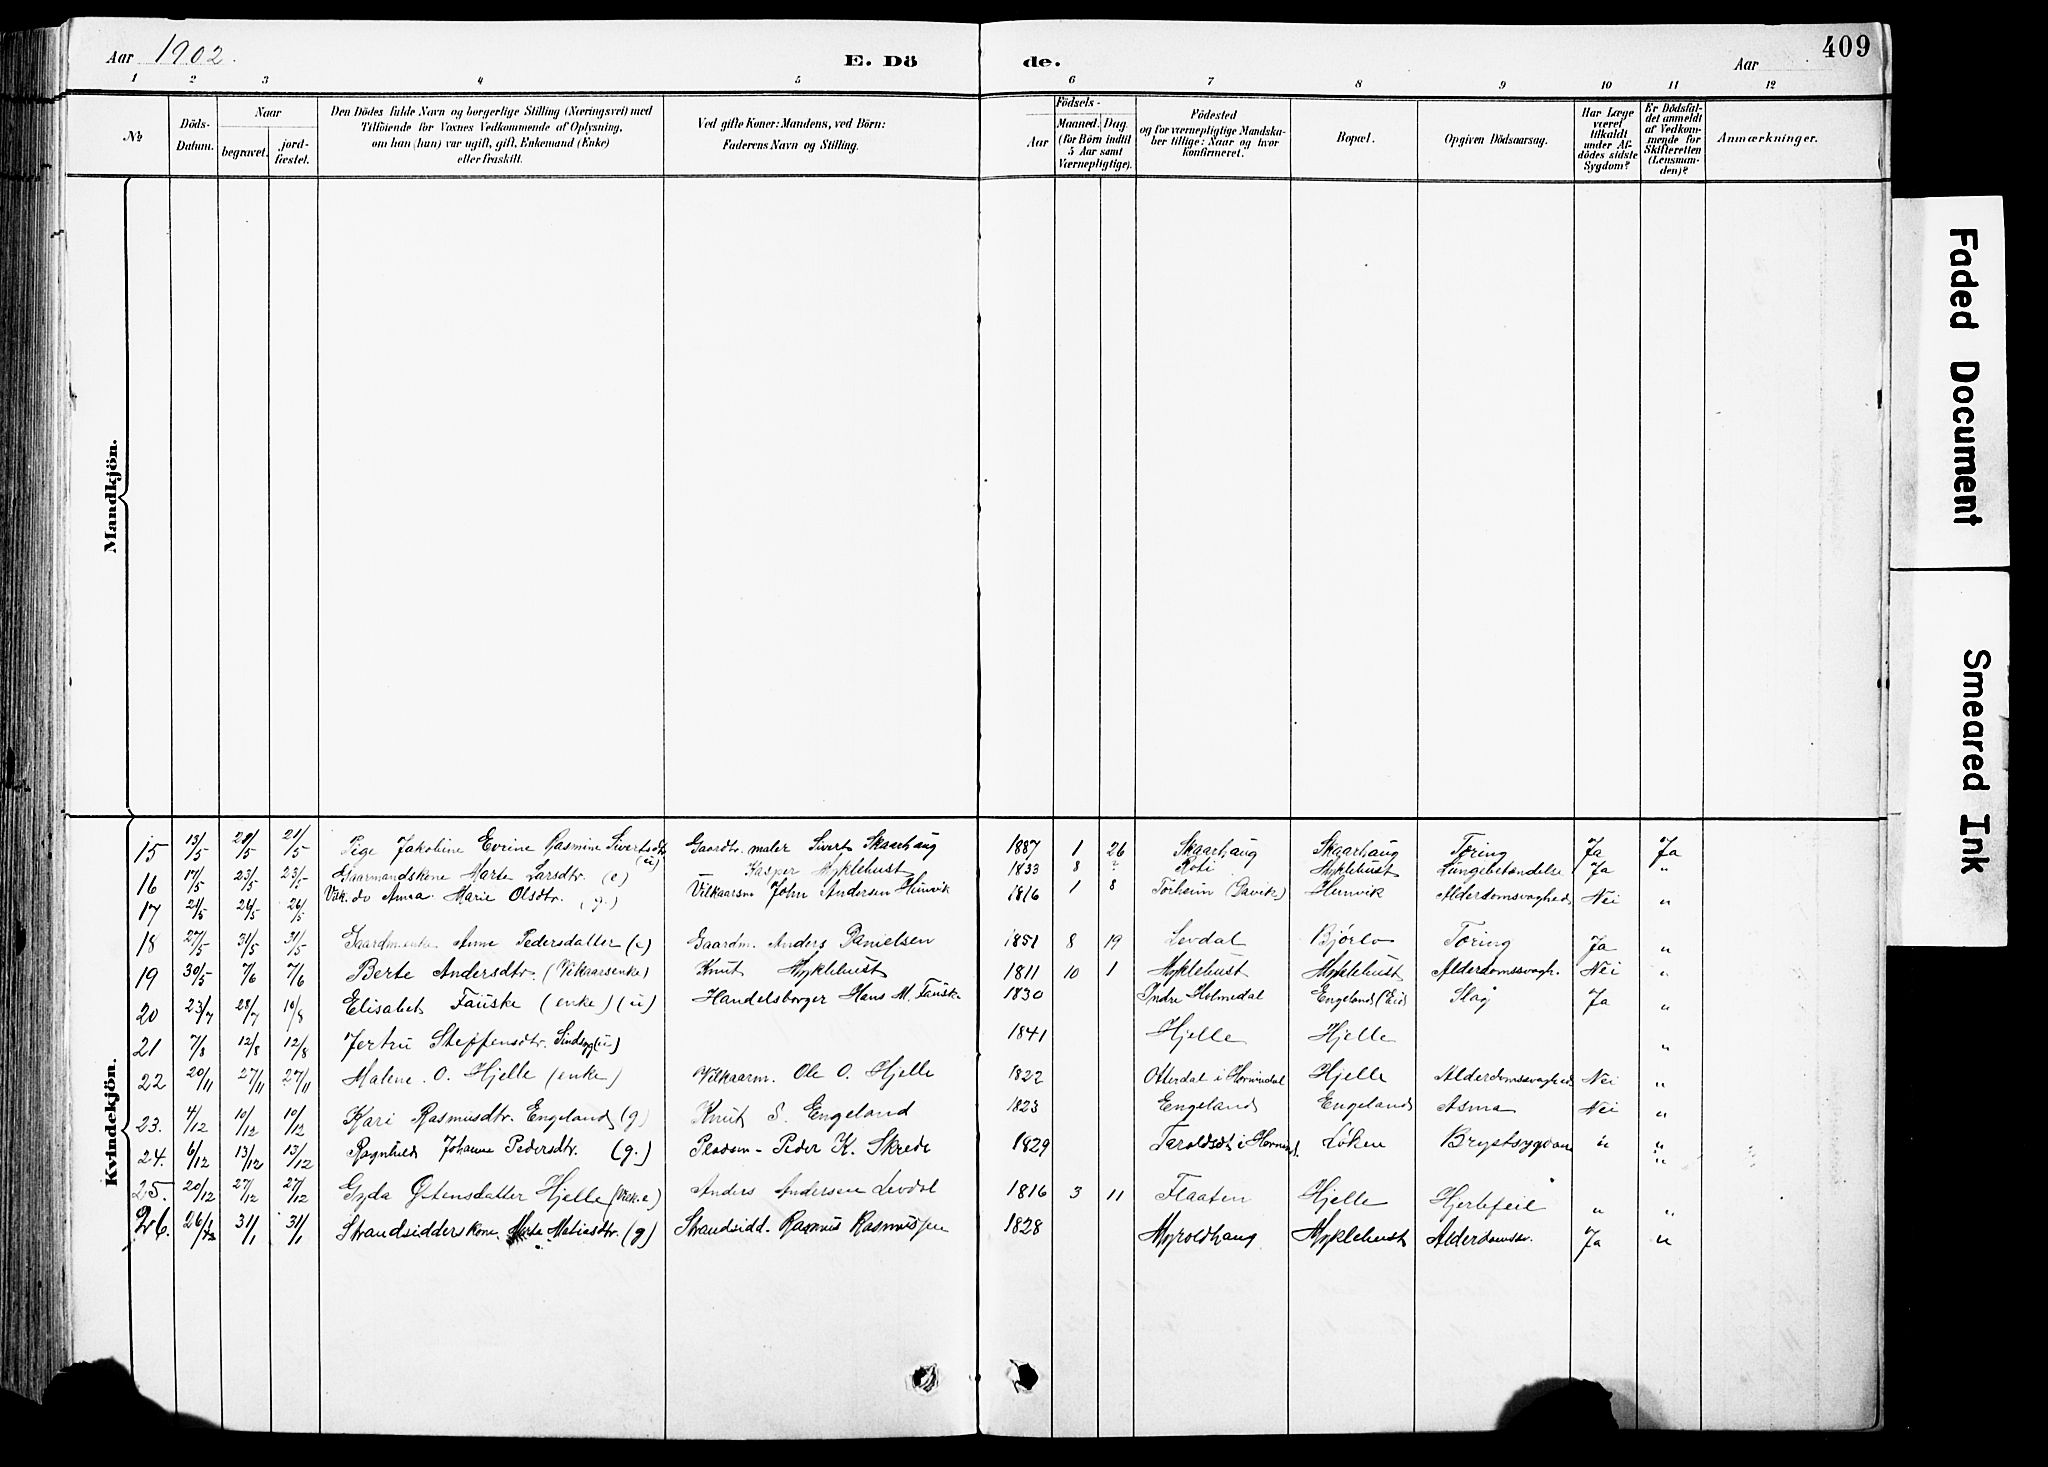 Aar 1902.
E. Dö de.
Aar
409
1 2 3 4 5 6 7 8 9 10 11 12
№
Döds-Datum.
Naar
begravet.
jord-fæstet.
Den Dödes fulde Navn og borgerlige Stilling (Næringsvei) med
Tilföiende for Voxnes Vedkommende af Oplysning,
om han (hun) var ugift, gift, Enkemand (Enke)
eller fraskilt.
Ved gifte Koner: Mandens, ved Börn:
Faderens Navn og Stilling.
Födsels-
Aar
Maaned. Dag.
(for Börn indtil
5 Aar samt
Værnepligtige).
Födested
og for værnepligtige Mandska-
ber tillige: Naar og hvor
konfirmeret.
Bopæl.
Opgiven Dödsaarsag.
Har Læge
været
tilkaldt
under Af-
dödes sidste
Sygdom?
Er Dödsfal-
det anmeldt
af Vedkom-
mende for
Skifteretten
(Lensman-
den)?
Anmærkninger.
Mandkjön.
Kvindekjön.
15 13/5 20/5 21/5 Pige Jakobine Evrine Rasmine Sivertsdtr (u) Gaardbr. maler Sivert Skaarhaug 1887 1 26 Skaarhaug Skaarhaug Tæring Ja Ja
16 17/5 23/5 23/5 Gaarmandskone Marte Larsdtr. (e) Kasper Myklebust 1833 8 ? Roti Myklebust Lungebetændelse Ja "
17 21/5 26/5 26/5 Vilk. do Anna Marie Olsdtr. (g.) Vilkaarsm John Andersen Hunvik 1816 1 8 Torheim (Davik) Hunvik Alderdomsvaghed Nei "
18 27/5 31/5 31/5 Gaardmenke Anne Pedersdatter (e) Gaardm. Anders Danielsen 1851 8 19 Levdal Bjørlo Tæring Ja "
19 30/5 7/6 7/6 Berte Andersdtr. (Vilkaarsenke) Knut Myklebust 1811 10 1 Myklebust Myklebust Alderdomssvagh. Nei "
20 23/7 28/7 10/8 Elisabet Fauske (enke) (u) Handelsborger Hans M. Fauske 1830 Indre Holmedal Engeland (Eid) Slag Ja "
21 7/8 12/8 12/8 Jertru Steffensdtr. Sindsyg (u) 1841 Hjelle Hjelle "
22 20/11 27/11 27/11 Malene O. Hjelle (enke) Vilkaarm. Ole O. Hjelle 1822 Otterdal i Hornindal Hjelle Alderdomssvaghed Nei "
23. 4/12 10/12 10/12 Kari Rasmusdtr. Engeland (g) Knut S. Engeland 1823 Engeland Engeland Asma Nei "
24. 6/12 13/12 13/12 Ragnhild Johanne Pedersdtr. (g.) Pladsm- Peder K. Skrede 1829 Taroldset i Hornind. Løken Brystsygdom " "
25. 20/12 27/12 27/12 Gyda Østensdatter Hjelle (Vilk. e) Anders Andersen Levdal 1816 3 11 Flaaten Hjelle Hjertefeil " "
26. 26/12 31/1 31/1 Strandsidderskone Marte Matiasdtr. (g) Strandsidd. Rasmus Rasmussen 1828 Myroldhaug Myklebust Alderdomssv. Ja "
Faded Document
Smeared Ink